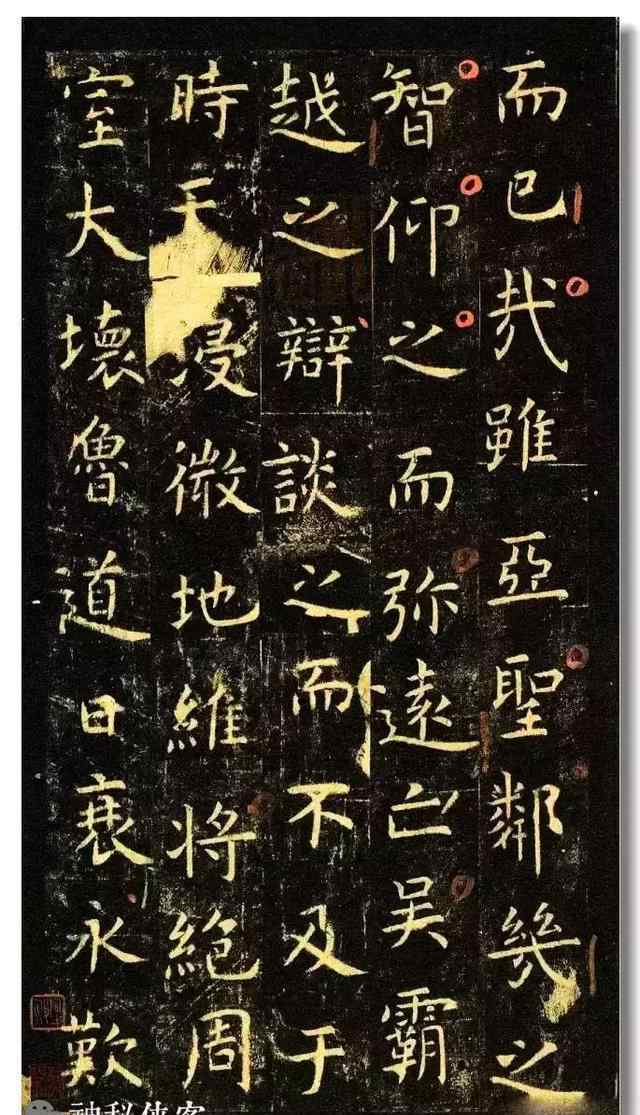 而已哉雖亞聖鄰幾之
智仰之而弥遠亡吴霸
越之辯談之而不及于
時天浸微地維将絶周
室大壞魯道日衰永歎
神秘侠客